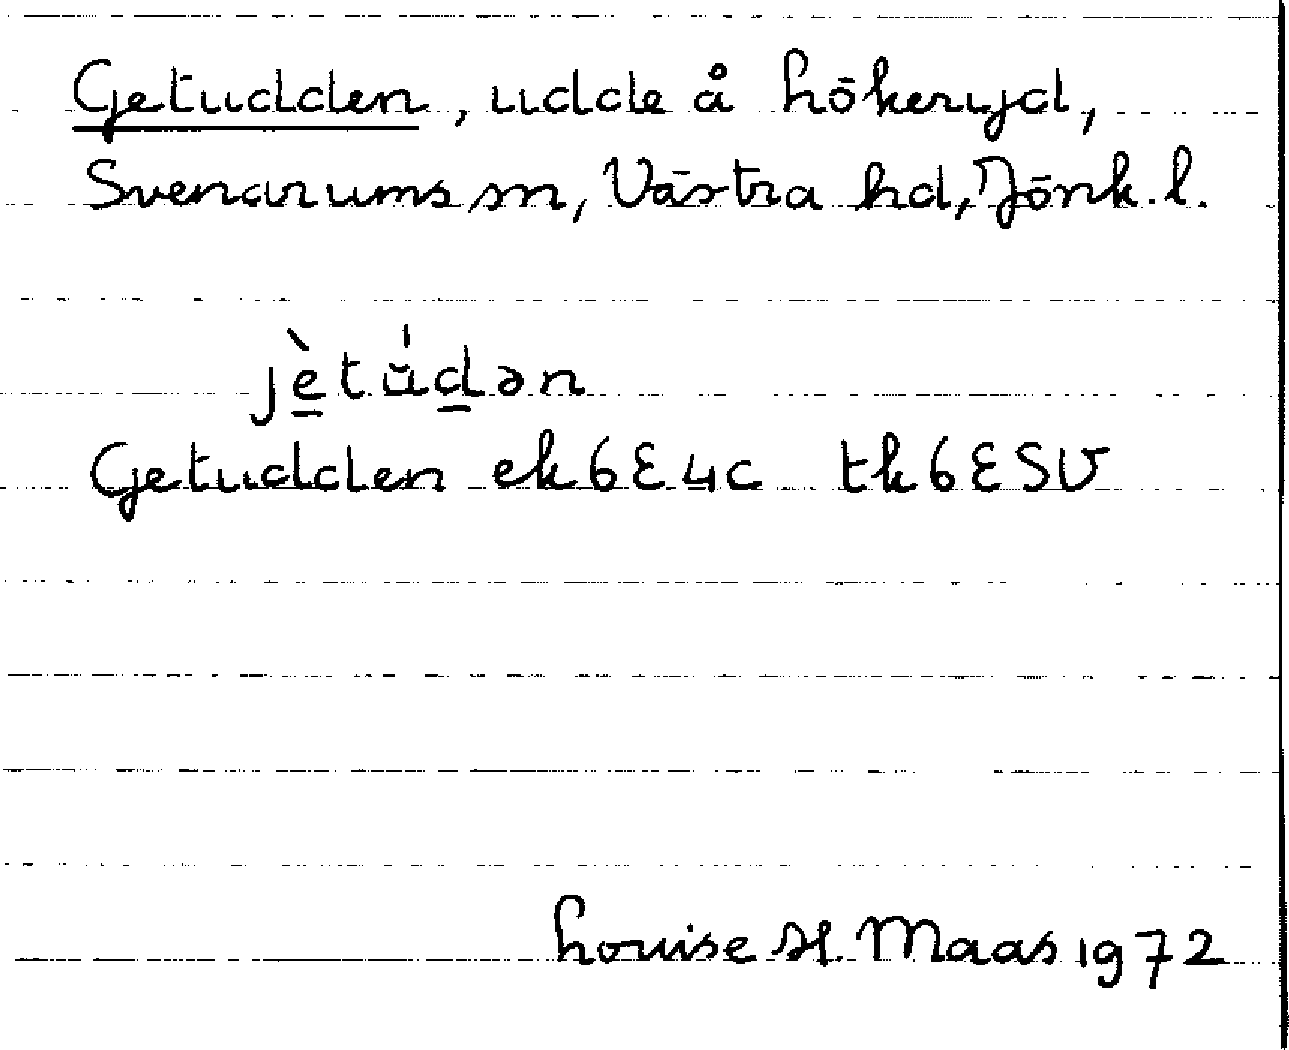 Getudden, udde å Lökeryd,
Svenarums sn, Västra hd, Jönk. l.
jètǘdən
Getudden ek6E4c tk6ESV
Louise H. Maas 1972